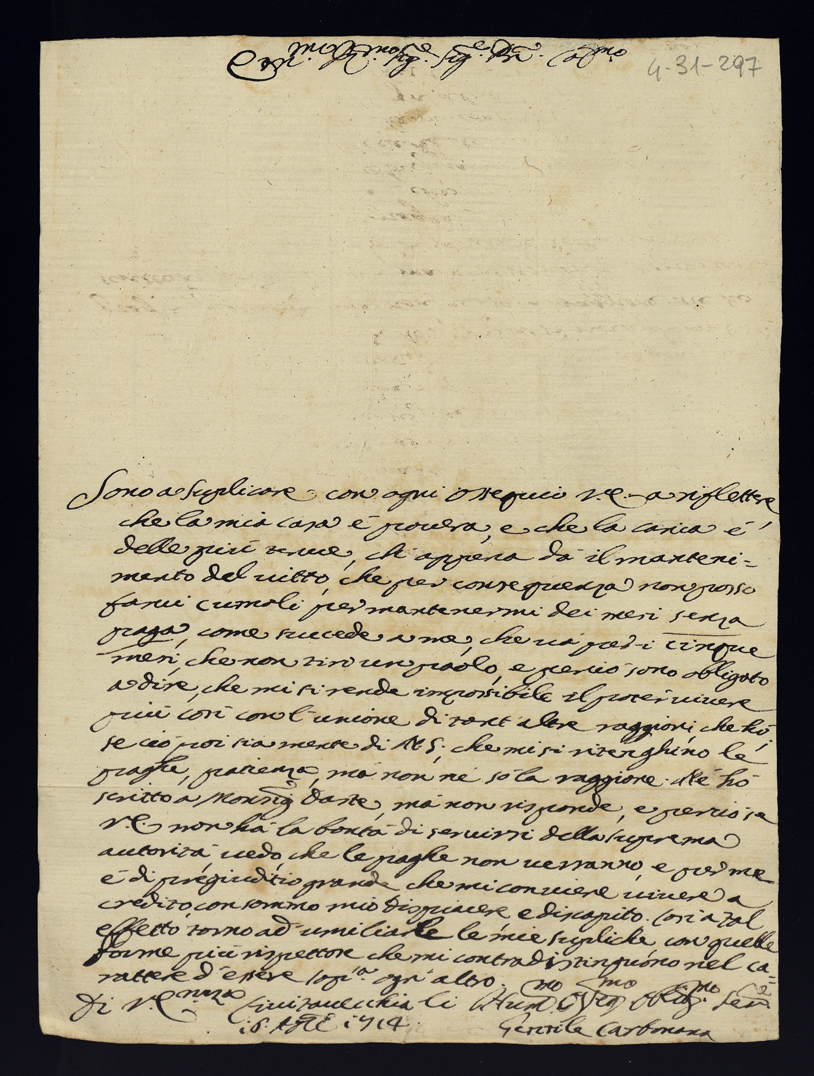 Em.mo e R.mo Sig.re Sig.re P.ne Col.mo
4-31-297
Sono a suplicare con ogni ossequio V.E. a riflettere,
che la mia casa è povera, e che la carica è
delle più tenue, ch'appena dà il manteni=
mento del vitto, che per consequenza non posso
farvi cumoli per mantenermi dei mesi senza
paga, come succede a me, che và per i cinque
mesi, che non tiro un paolo, e perciò sono obligato
a dire, che mi si rende impossibile il poter vivere
più così con l'unione di tant'altre raggioni, che hò,
se ciò poi sia mente di N.S., che mi si ritenghino le
paghe, patienza, mà non ne so la raggione. Ne hò
scritto a Monsig.r Daste, mà non risponde, e perciò se
V.E. non hà la bontà di servirsi della suprema
autorità, vedo, che le paghe non verranno, e per me
è di pregiuditio grande che mi conviene vivere a
credito con sommo mio dispiacere e discapito. Così a tal
effetto torno ad'umiliarle le mie supliche con quelle
forme più rispettose che mi contradistinguono nel ca=
rattere d'essere sop.a ogn'altro
Di V.E.nza Civitavecchia li Hum.mo Oblig.mo Ser.
6 Ap.le 1714. Gentile Carbonana